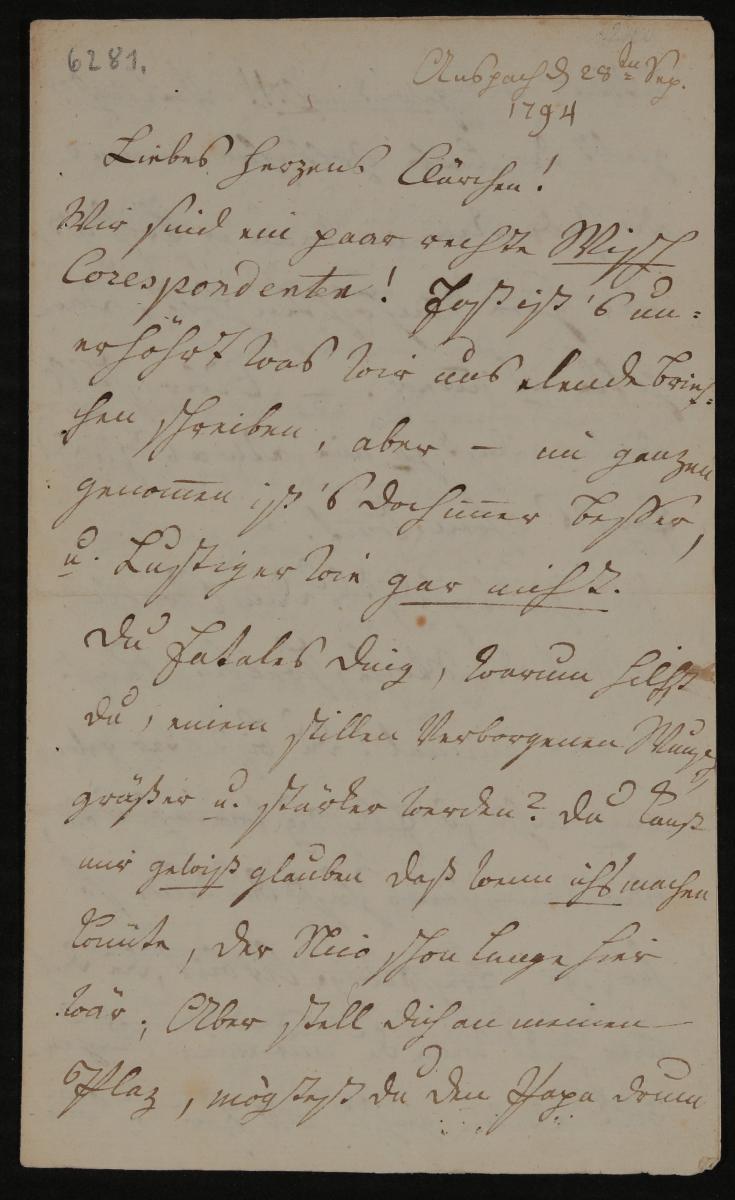 6281.
Anspach d 28ten Sep.
1794
Liebes herzens Clärchen!
Wir sind ein paar rechte Misch
Corespondenten! Fast ist's un=
erhöhrt was wir uns elende brief=
chen schreiben, aber – im ganzen
genommen ist's doch immer besser,
u. Lustiger wie gar nicht.
Du fatales Ding, warum hilfst
du, einem stillen Verborgenen Wunsch
gräßer u. stärker werden? Du kanst
mir gewiß glauben daß wenn ichs machen
könnte, der schon lange hier
wär; Aber stell dich an meinen
Plaz, mögtest du den Papa drum